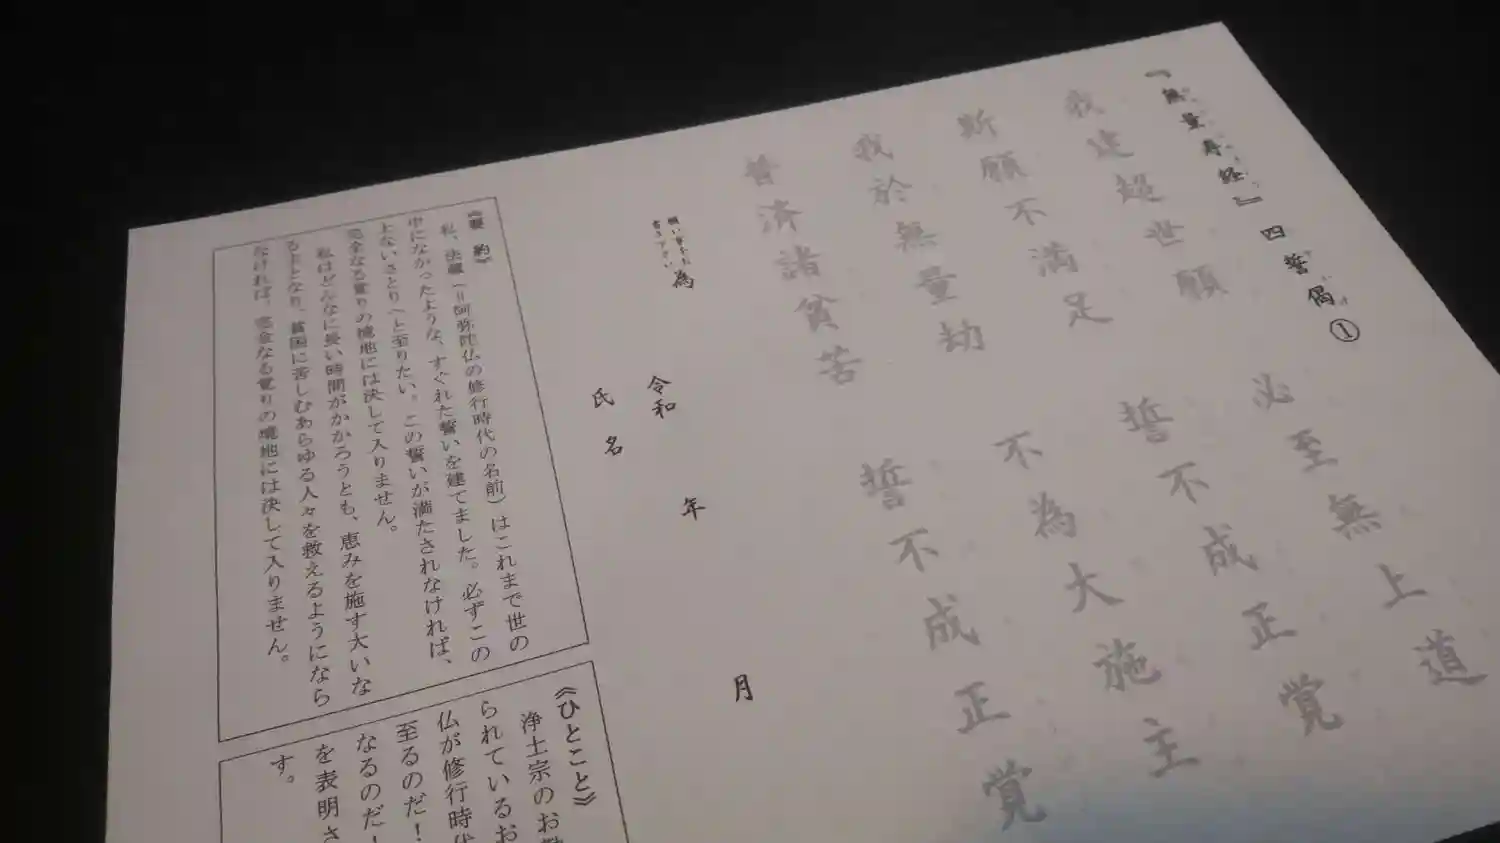 『無量寿経』四誓偈①
我建超世願 必至無上道
斯願不満足 誓不成正覚
我於無量劫 不為大施主
普済諸貧苦 誓不成正覚
願い事をお書き下さい
為
令和 年 月
氏名
《要約》
私、法蔵（＝阿弥陀仏の修行時代の名前）はこれまで世の
中になかったような、すぐれた誓いを建てました。必ずこの
上ないさとりへと至りたい。この誓いが満たされなければ、
完全なる覚りの境地には決して入りません。
私はどんなに長い時間がかかろうとも、恵みを施す大いな
る主となり、貧困に苦しむあらゆる人々を救えるようになら
なければ、完全なる覚りの境地には決して入りません。
《ひとこと》
浄土宗のお勤
られているお
仏が修行時代
至るのだ！
なるのだ！
を表明さ
す。